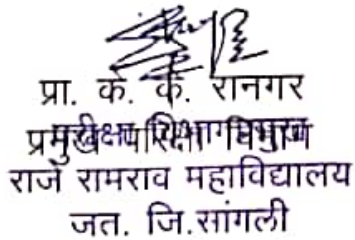 प्रा. के. के. रानगर
प्रमुख परिक्षा विभाग
राजे रामराव महाविद्यालय
जत. जि.सांगली